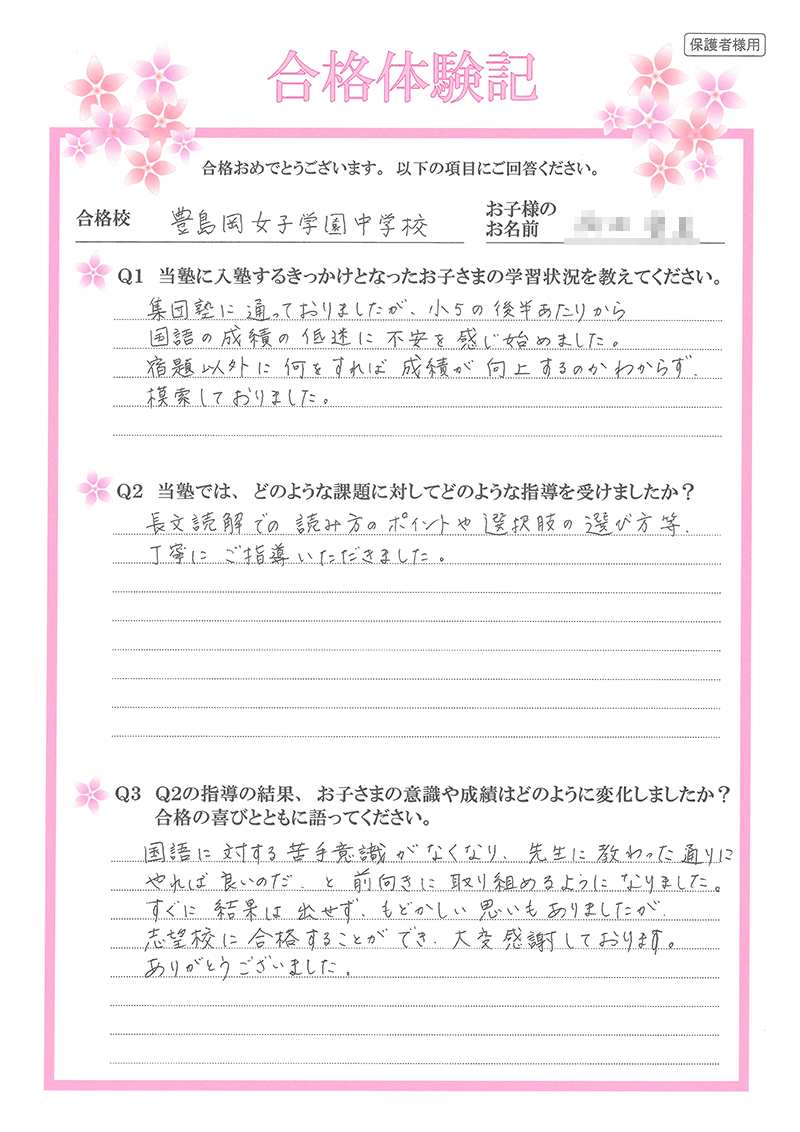 保護者様用
合格体験記
合格おめでとうございます。以下の項目にご回答ください。
合格校 豊島岡女子学園中学校 お子様のお名前
Q1 当塾に入塾するきっかけとなったお子さまの学習状況を教えてください。
集団塾に通っておりましたが、小5の後半あたりから
国語の成績の低迷に不安を感じ始めました。
宿題以外に何をすれば成績が向上するのかわからず、
模索しておりました。
Q2 当塾では、どのような課題に対してどのような指導を受けましたか？
長文読解での読み方のポイントや選択肢の選び方等、
丁寧にご指導いただきました。
Q3 Q2の指導の結果、お子さまの意識や成績はどのように変化しましたか？
合格の喜びとともに語ってください。
国語に対する苦手意識がなくなり、先生に教わった通りに
やれば良いのだ、と前向きに取り組めるようになりました。
すぐに結果は出せず、もどかしい思いもありましたが、
志望校に合格することができ、大変感謝しております。
ありがとうございました。